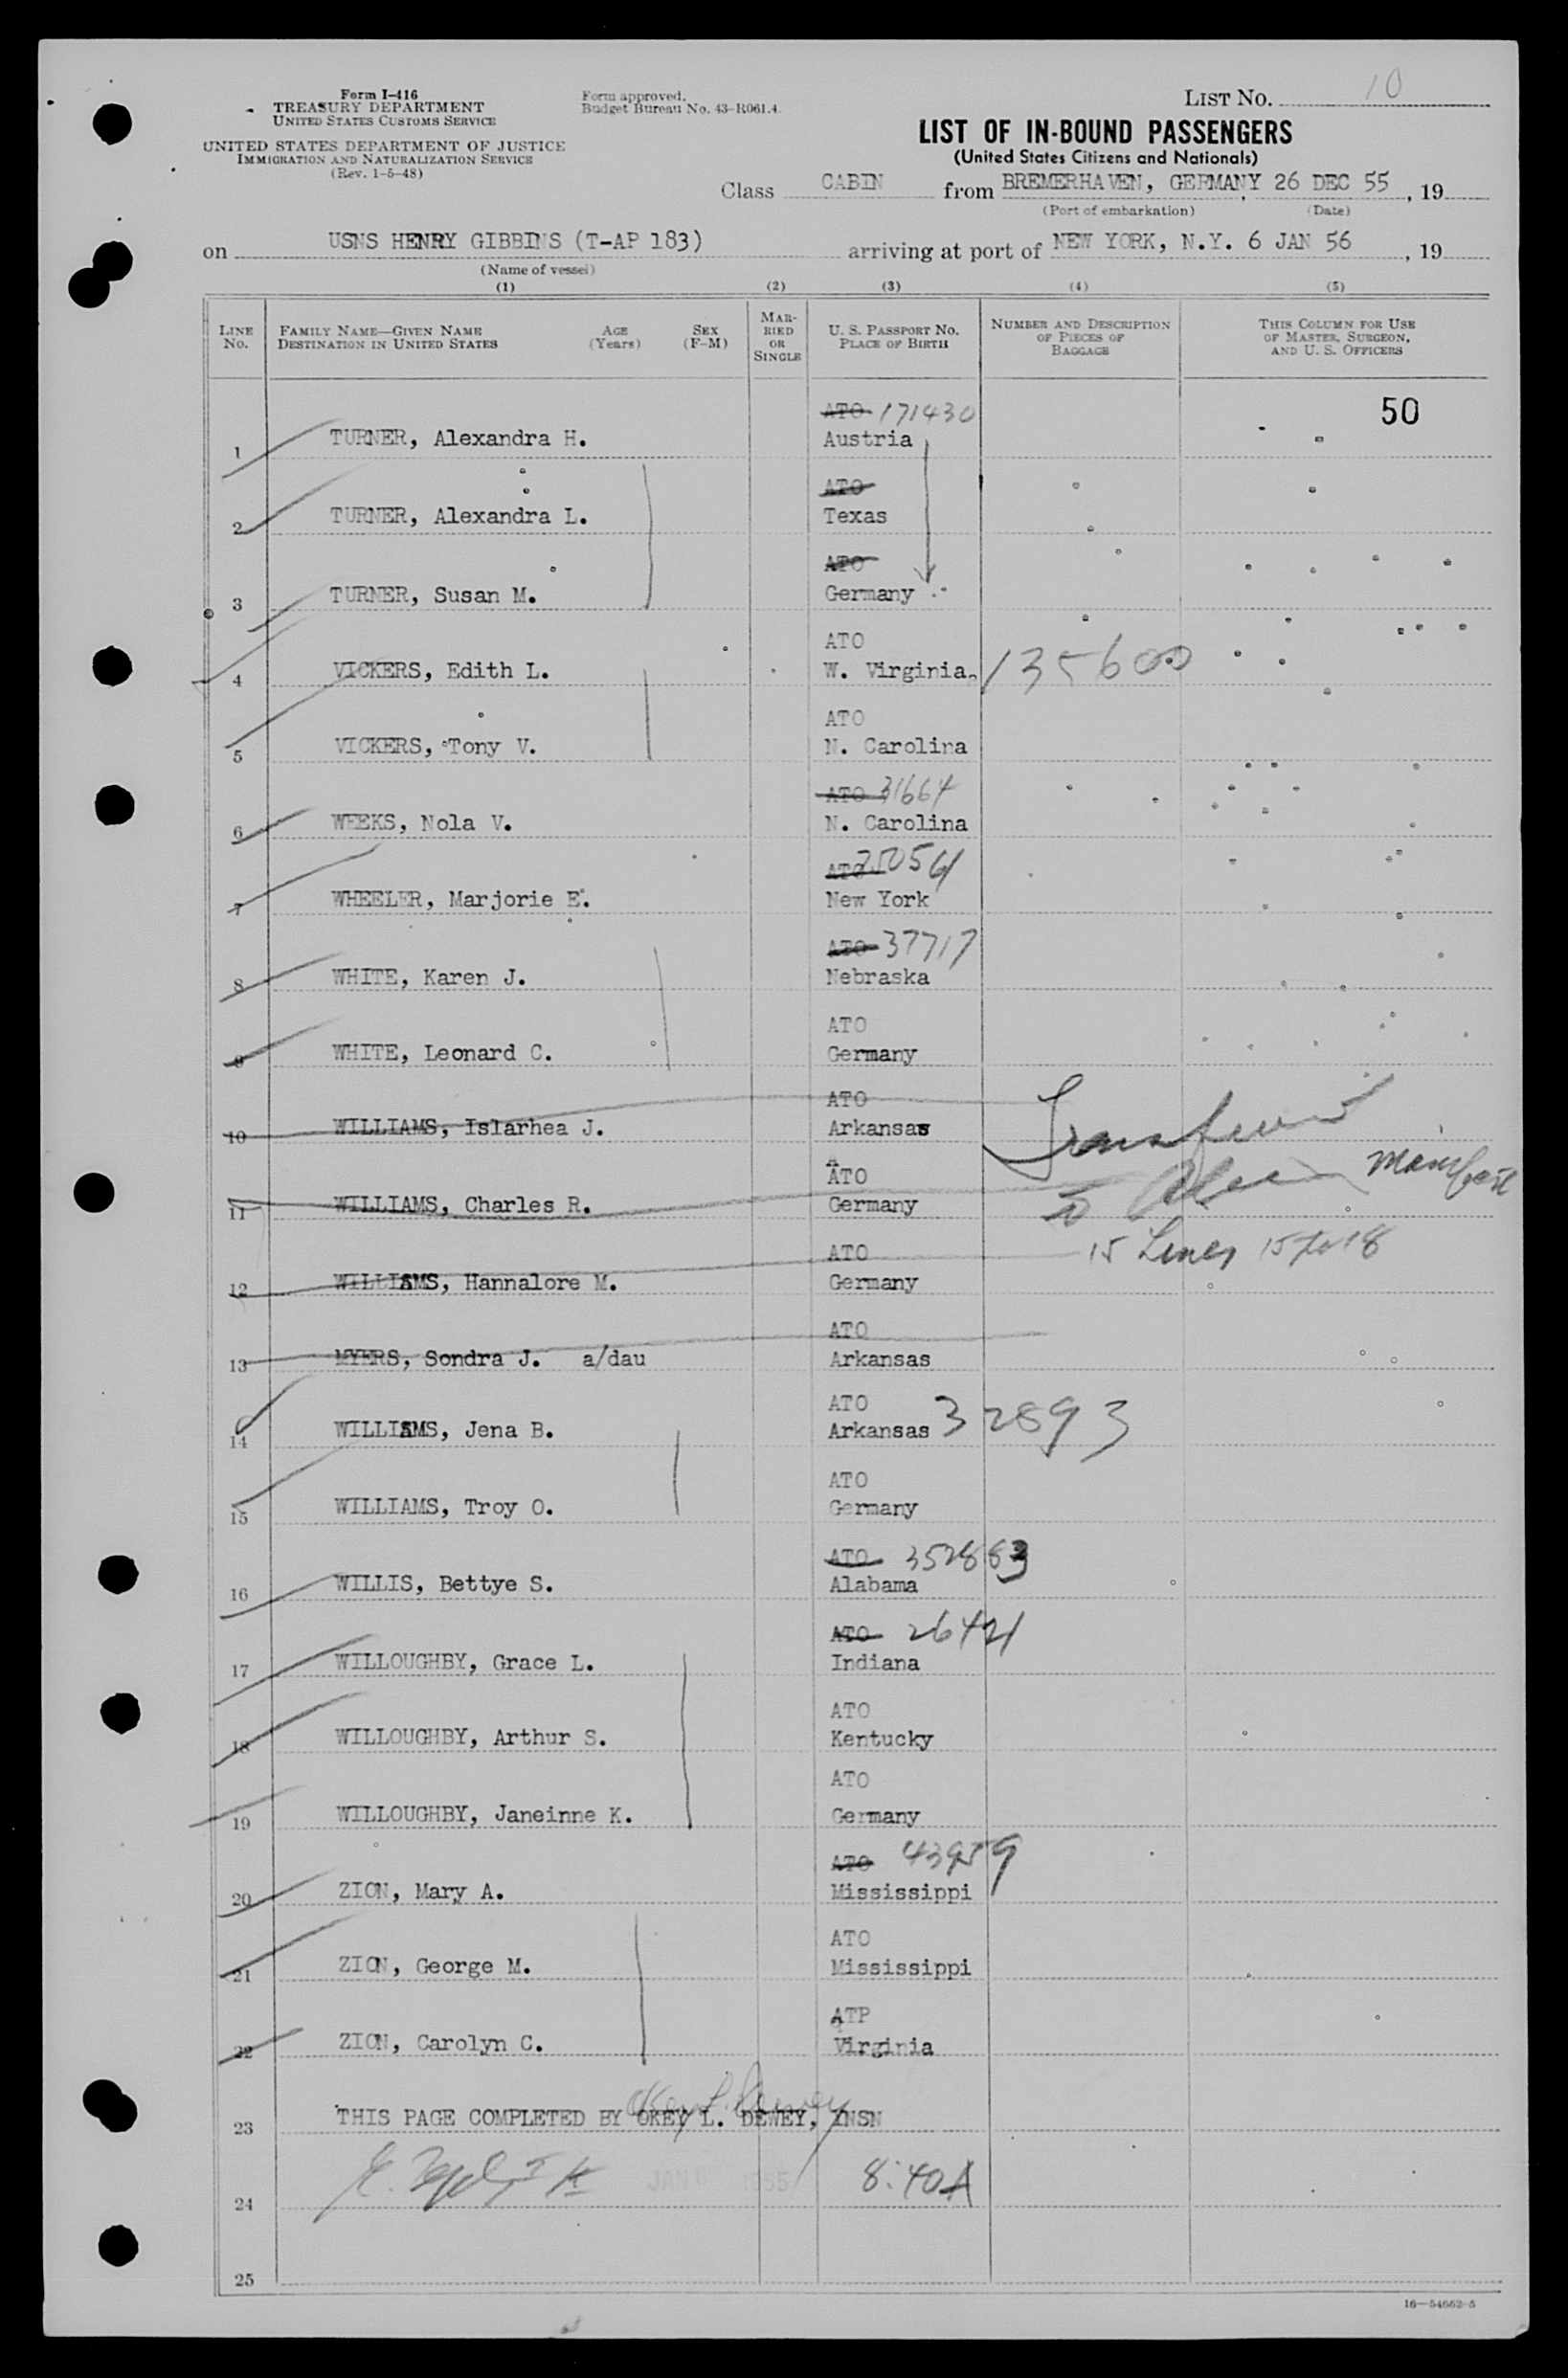 Form I-416
TREASURY DEPARTMENT
UNITED STATES CUSTOMS SERVICE
UNITED STATES DEPARTMENT OF JUSTICE
IMMIGRATION AND NATURALIZATION SERVICE
(Rev. 1-5-48)
Form approved.
Budget Bureau No. 43-R061.4.
LIST NO. 10
LIST OF IN-BOUND PASSENGERS
(United States Citizens and Nationals)
Class CABIN from BREMERHAVEN, GERMANY, 26 DEC 55, 19
(Port of embarkation) (Date)
on USNS HENRY GIBBINS (T-AP 183) arriving at port of NEW YORK, N.Y. 6 JAN 56, 19
(Name of vessel)
(1) (2) (3) (4) (5)
LINE NO.
FAMILY NAME—GIVEN NAME
DESTINATION IN UNITED STATES
AGE (Years)
SEX (F-M)
MARRIED OR SINGLE
U. S. PASSPORT NO.
PLACE OF BIRTH
NUMBER AND DESCRIPTION OF PIECES OF BAGGAGE
THIS COLUMN FOR USE OF MASTER, SURGEON, AND U. S. OFFICERS
ATO 171430 50
1 TURNER, Alexandra H. Austria
ATO
2 TURNER, Alexandra L. Texas
ATO
3 TURNER, Susan M. Germany
ATO
4 VICKERS, Edith L. W. Virginia 135600
ATO
5 VICKERS, Tony V. N. Carolina
ATO 31664
6 WEEKS, Nola V. N. Carolina
ATO
7 WHEELER, Marjorie E. New York
ATO 37717
8 WHITE, Karen J. Nebraska
ATO
9 WHITE, Leonard C. Germany
ATO
10 WILLIAMS, Islarhea J. Arkansas
ATO
11 WILLIAMS, Charles R. Germany
to Alien Manifest
ATO 15 Lines 15 to 18
12 WILLIAMS, Hannalore M. Germany
ATO
13 MYERS, Sondra J. a/dau Arkansas
ATO
14 WILLIAMS, Jena B. Arkansas 32893
ATO
15 WILLIAMS, Troy O. Germany
ATO 352883
16 WILLIS, Bettye S. Alabama
ATO 26421
17 WILLOUGHBY, Grace L. Indiana
ATO
18 WILLOUGHBY, Arthur S. Kentucky
ATO
19 WILLOUGHBY, Janeinne K. Germany
ATO 43959
20 ZION, Mary A. Mississippi
ATO
21 ZION, George M. Mississippi
ATP
22 ZION, Carolyn C. Virginia
23 THIS PAGE COMPLETED BY OKEY L. DEWEY, INSN
24 8:40A
25
16—54662-5